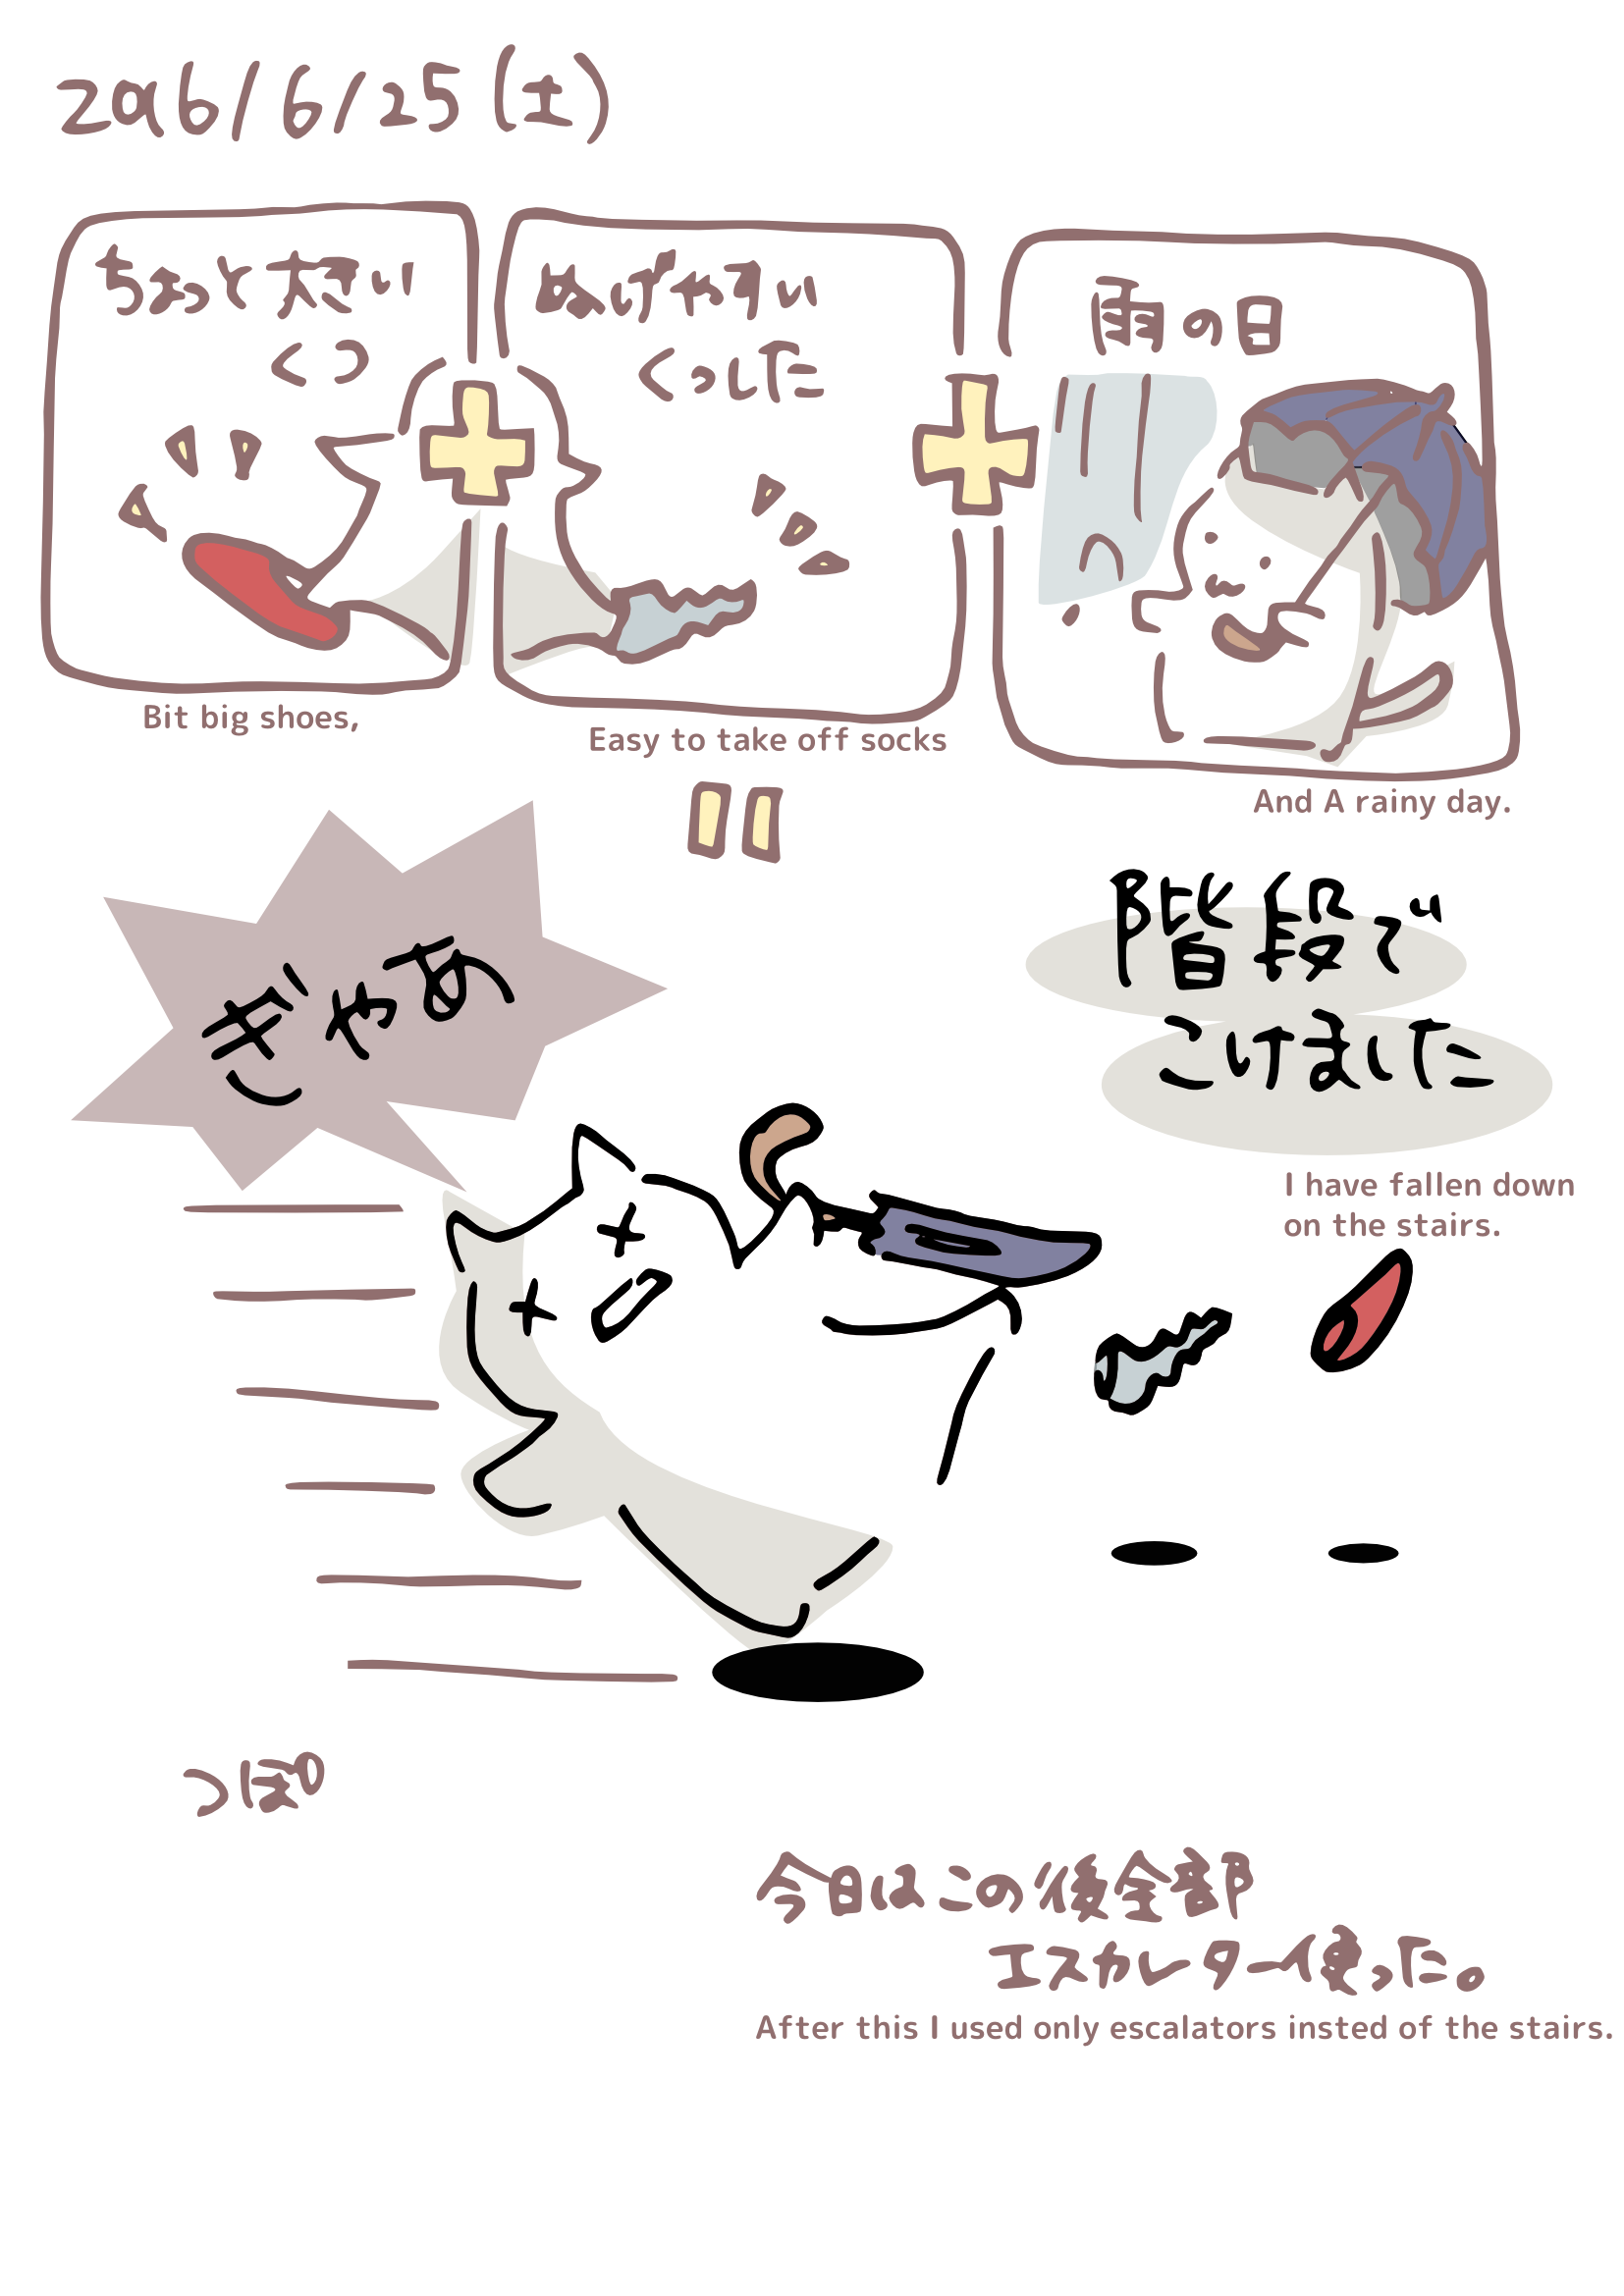 2016/6/25(土)
ちょっと大きい
くつ
ぬげやすい
くつした
雨の日
Bit big shoes,
Easy to take off socks
And A rainy day.
ぎゃあ
階段で
こけました
I have fallen down
on the stairs.
つぽ
今日はこの後全部
エスカレーター使った。
After this I used only escalators insted of the stairs.